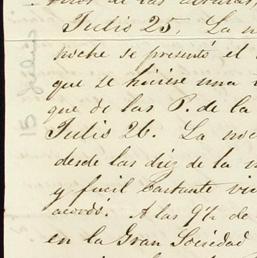 de las
Julio 25. La n
noche se presentó el
que se hiciese una
que de las P. de la
Julio 26. La noc
desde las diez de la n
y fucil bastante viv
acordó. A las 9½ de
en la Gran Sociedad
15 Julio